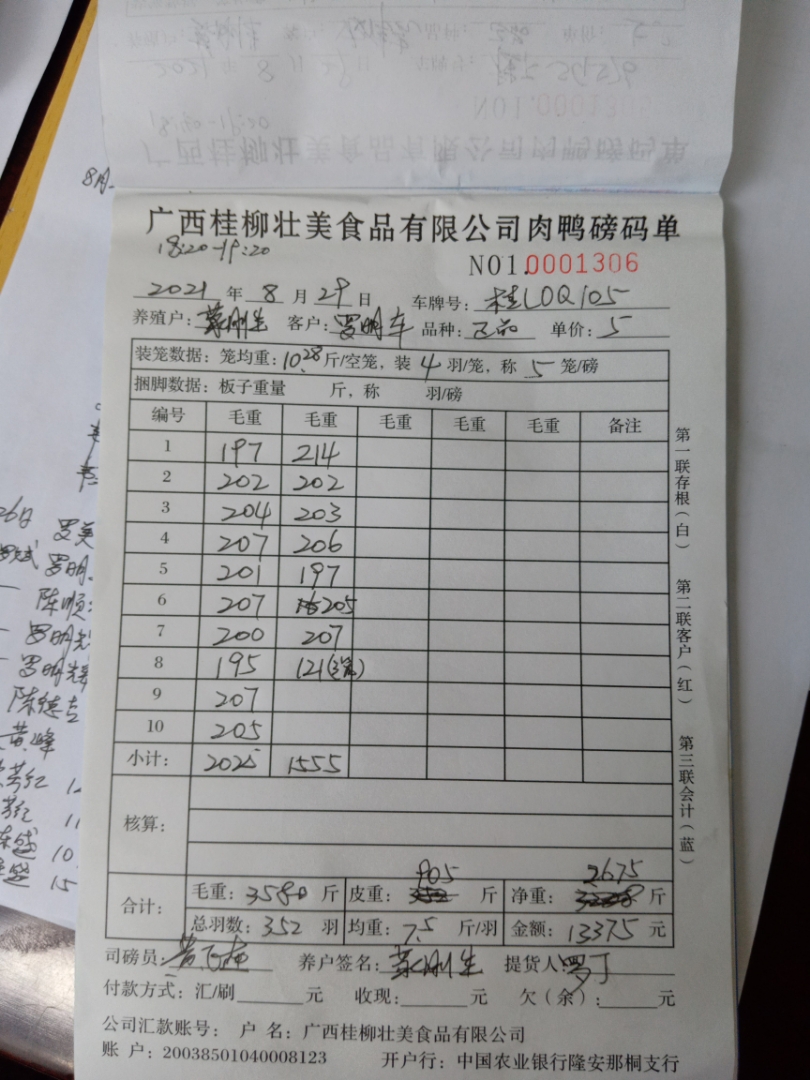 8月
广西桂柳壮美食品有限公司肉鸭磅码单
18:20-19:20
NO1.0001306
2021 年 8 月 29 日 车牌号: 桂L0Q105
养殖户: 客户: 罗明车 品种: 单价: 5
装笼数据: 笼均重: 10.28 斤/空笼, 装 4 羽/笼, 称 5 笼/磅
捆脚数据: 板子重量 斤, 称 羽/磅
编号 毛重 毛重 毛重 毛重 毛重 备注
1 197 214
2 202 202
3 204 203
4 207 206
5 201 197
6 207 205
7 200 207
8 195 121(3笼)
9 207
10 205
小计: 2025 1555
核算:
905 2675
合计: 毛重: 3580 斤 皮重: 斤 净重: 斤
总羽数: 352 羽 均重: 7.5 斤/羽 金额: 13375 元
司磅员: 养户签名: 提货人: 罗丁
付款方式: 汇/刷 元 收现: 元 欠(余): 元
公司汇款账号: 户 名: 广西桂柳壮美食品有限公司
账 户: 20038501040008123 开户行: 中国农业银行隆安那桐支行
第一联存根(白) 第二联客户(红) 第三联会计(蓝)
26日 罗美
罗明
陈顺
罗明
罗明
陈德
黄峰